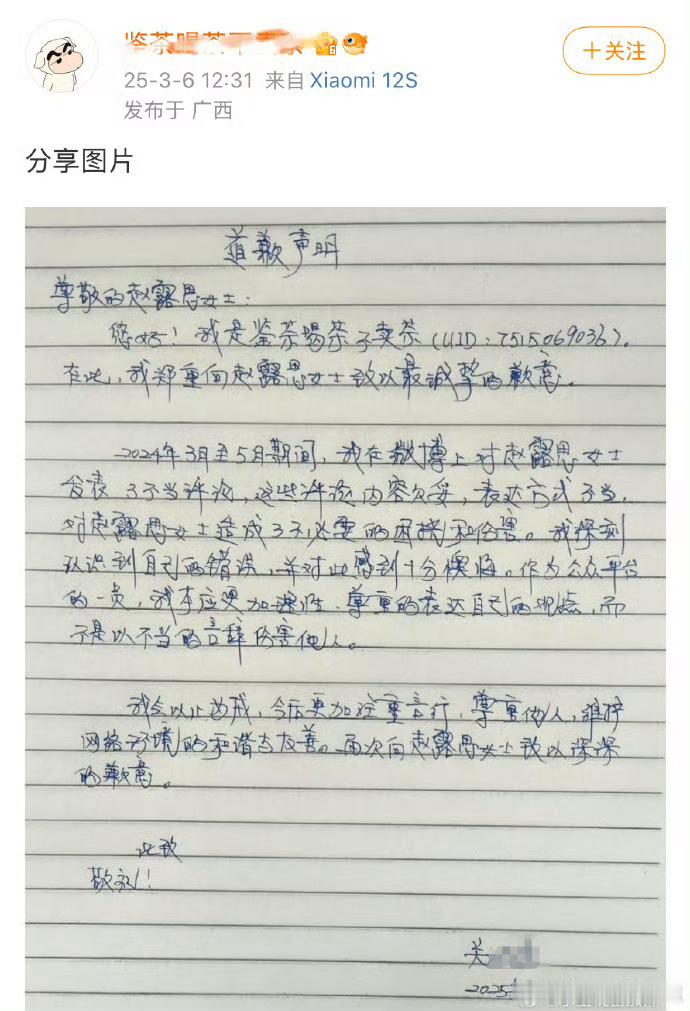 25-3-6 12:31 来自 Xiaomi 12S
发布于 广西
+关注
分享图片
道歉声明
尊敬的赵露思女士:
您好!我是鉴茶喝茶不卖茶(UID:7515069036).
在此,我郑重向赵露思女士致以最诚挚的歉意.
2024年3月至5月期间,我在微博上对赵露思女士
发表了不当评论,这些评论内容欠妥,表达方式不当,
对赵露思女士造成了不必要的困扰和伤害。我深刻
认识到自己的错误,并对此感到十分懊悔。作为公众平台
的一员,我本应更加理性、尊重的表达自己的观点,而
不是以不当的言辞伤害他人。
我会以此为戒,今后更加注重言行,尊重他人,维护
网络环境的和谐与友善。再次向赵露思女士致以深深
的歉意。
此致
敬礼!
关
2025